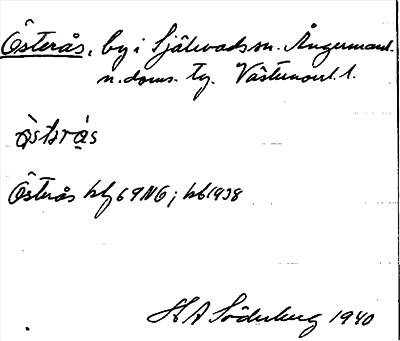 Österås, by i Själevads sn. Ångermanl.
n. doms. tg. Västernorrl. l.
Österås kbl 69 NG; kb 1938
H A Söderberg 1940